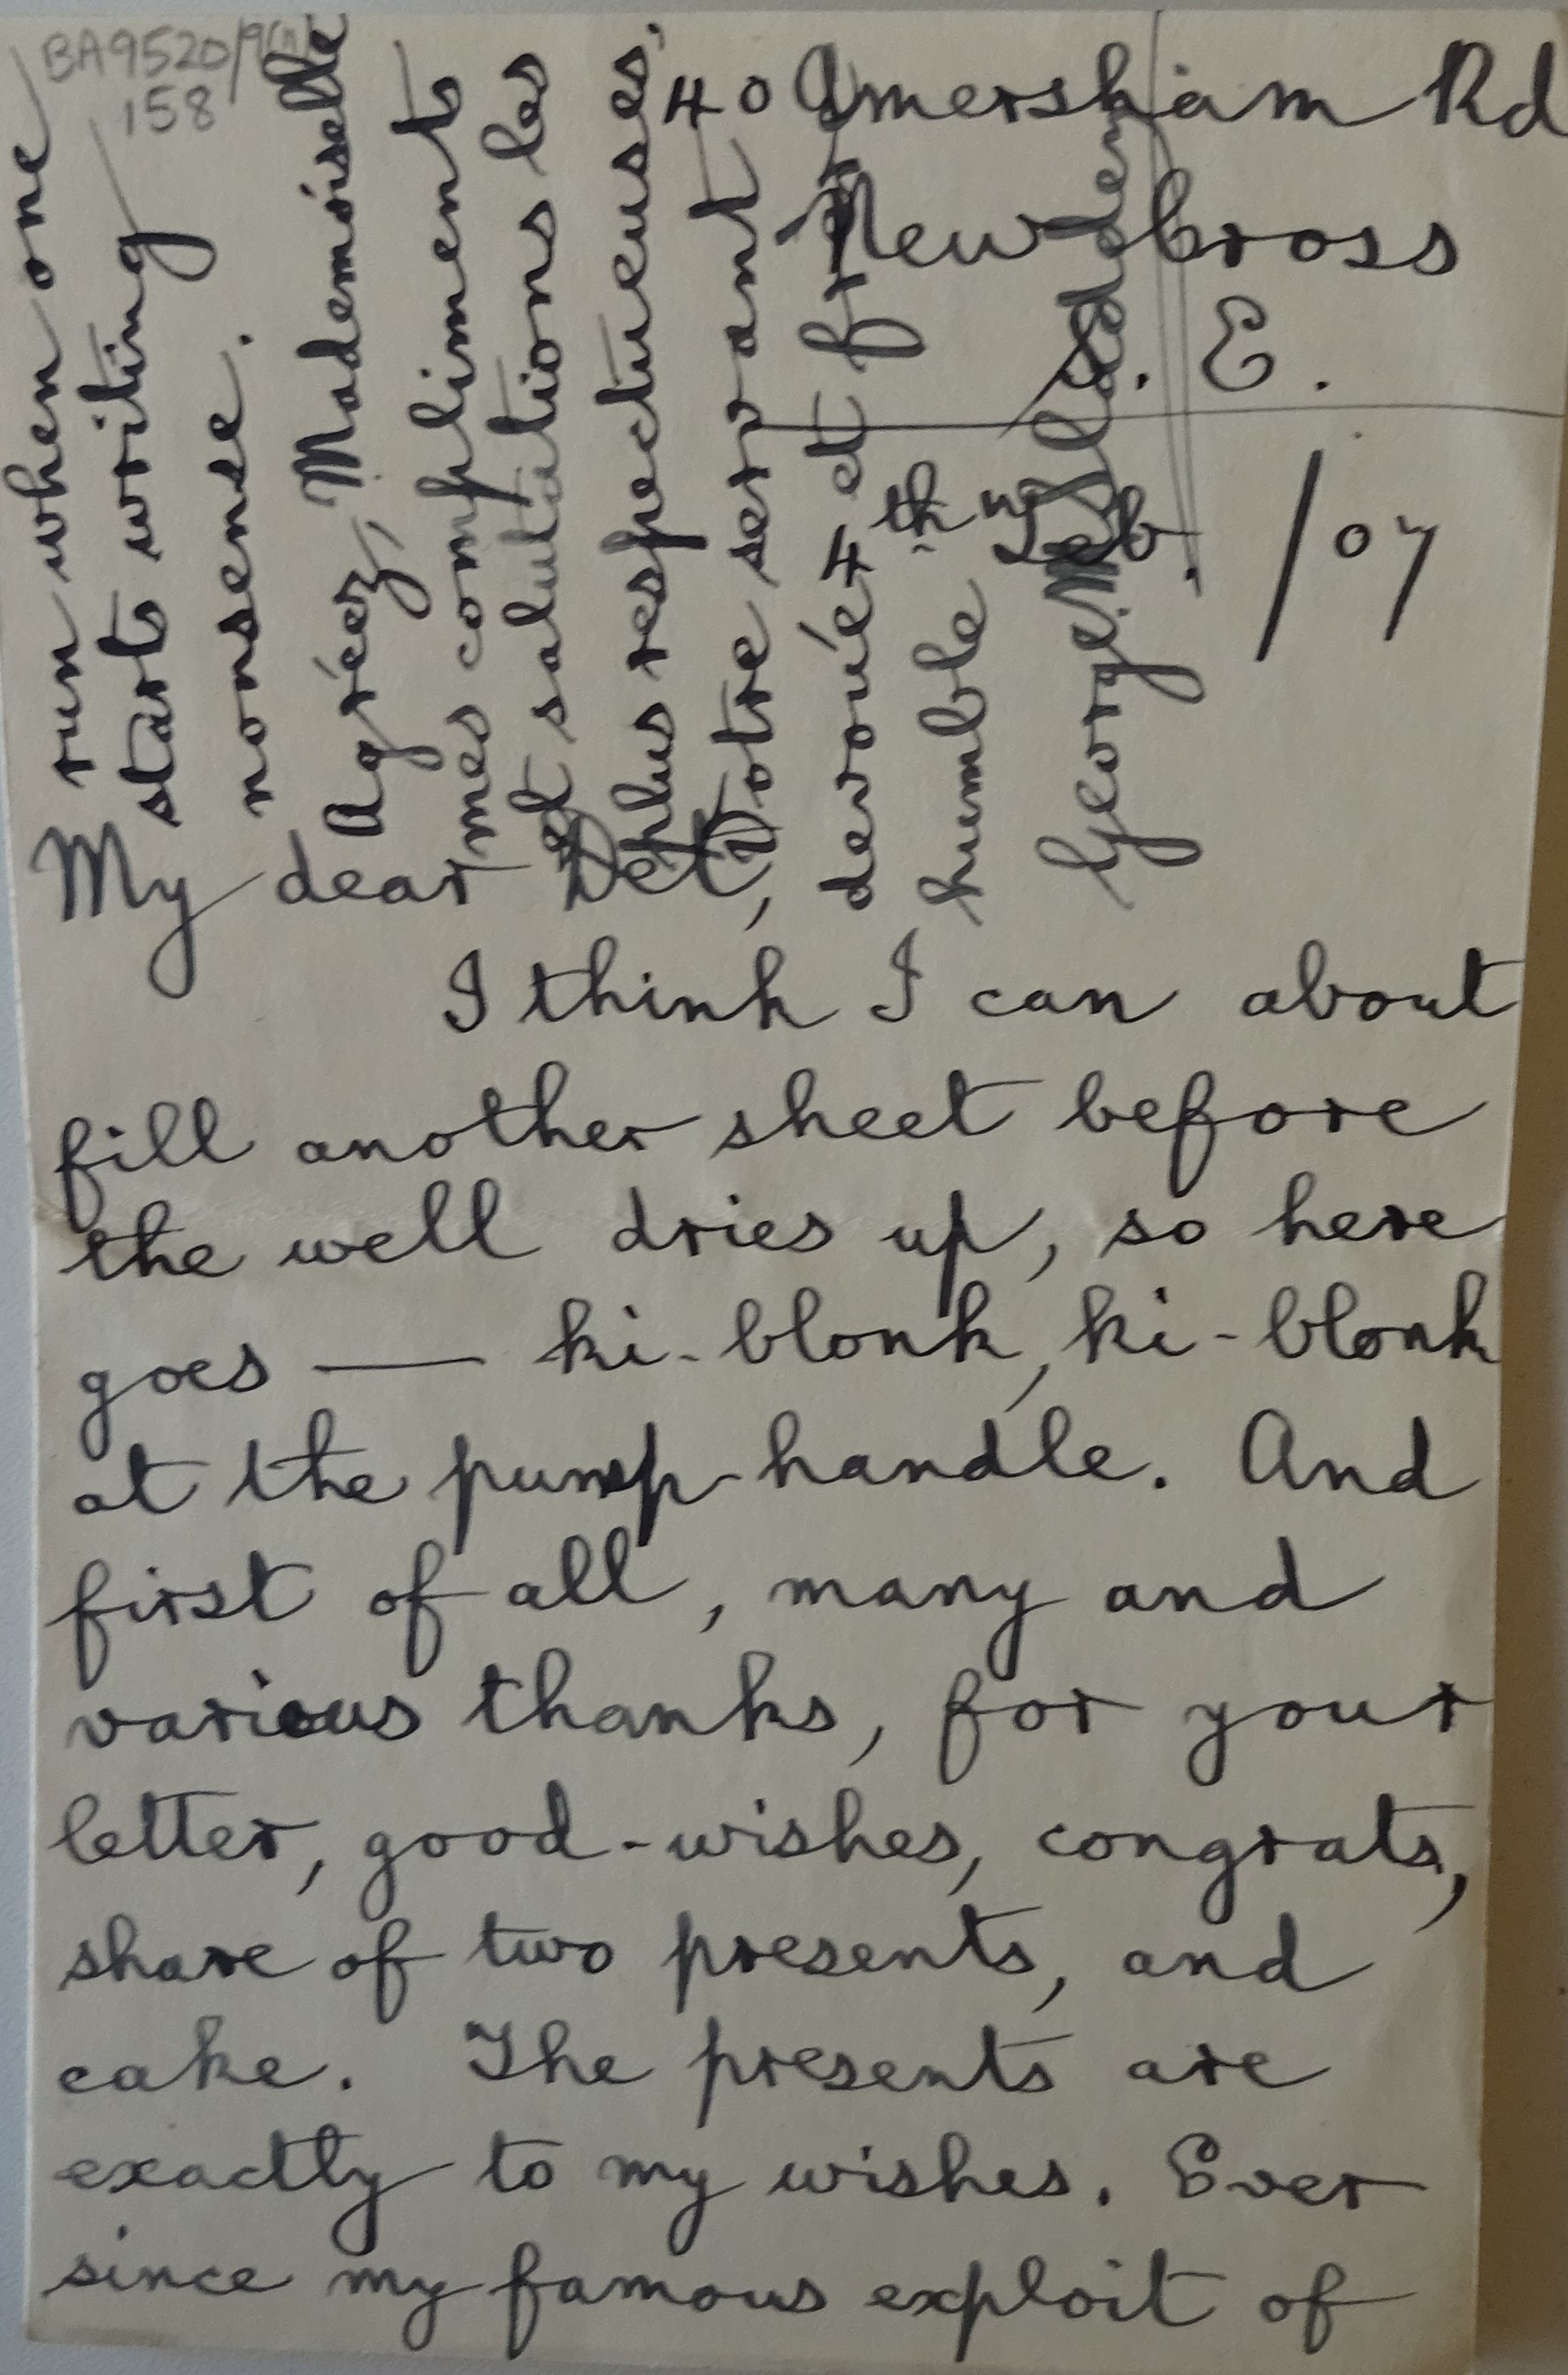 BA9520/9(a)
158
40 Amersham Rd
New Cross
S. E.
4th Feb. /07
My dear Det,
I think I can about
fill another sheet before
the well dries up, so here
goes — ki-blonk, ki-blonk
at the pump-handle. And
first of all, many and
various thanks, for your
letter, good-wishes, congrats,
share of two presents, and
cake. The presents are
exactly to my wishes. Ever
since my famous exploit of
run when one
starts writing
nonsense.
Agréez, Mademoiselle
mes compliments
et salutations les
plus respectueuses,
Votre servant
devoué et
humble
George